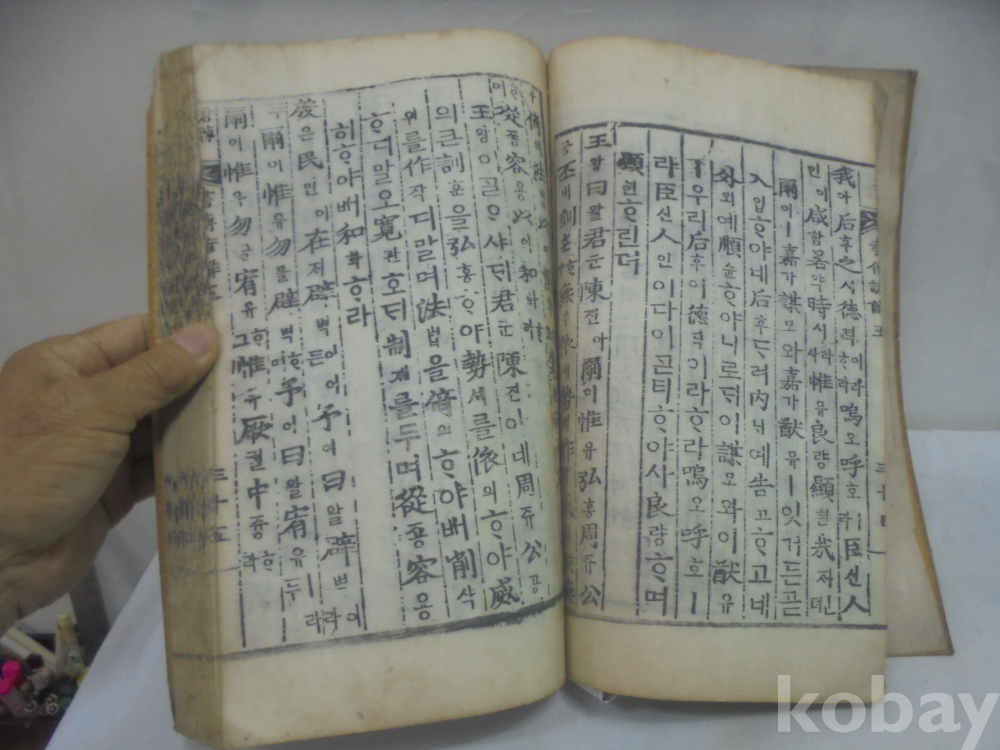 我아后후之지德덕이라ᄒᆞ라嗚오呼호ㅣ라臣신人
인이咸함若약時시사라惟유良량顯현哉ᄌᆡ져인뎌
爾이ㅣ嘉가謀모와嘉가猷유ㅣ잇거든곧
入입ᄒᆞ야네后후ᄃᆞ려內ᄂᆡ예告고ᄒᆞ고네
外외예順슌ᄒᆞ야니르되이謀모와이猷유
ㅣ우리后후이德덕이라ᄒᆞ라嗚오呼호ㅣ
라臣신人인이다이ᄀᆞᆮ티ᄒᆞ야사良량ᄒᆞ며
顯현ᄒᆞ린뎌
王왕曰왈君군陳진아爾이惟유弘홍周쥬公
공丕비訓훈
從죵容용以이和화ᄒᆞ라
王왕이ᄀᆞᆯᄋᆞ샤ᄃᆡ君군陳진이네周쥬公공
의큰訓훈을弘홍ᄒᆞ야勢셰를依의ᄒᆞ야威
위를作작디말며法법을倚의ᄒᆞ야ᄡᅥ削삭
ᄒᆞ디말오寬관호ᄃᆡ制졔를두며從죵容용
히ᄒᆞ야ᄡᅥ和화ᄒᆞ라
殷은民민이在ᄌᆡ辟벽이어든予여曰왈辟벽이라
두爾이惟유勿믈辟벽ᄒᆞ며予여曰왈宥유ㅣ라두
爾이惟유勿믈宥유ᄒᆞ고惟유厥궐中듕ᄒᆞ라
三十五
kobay